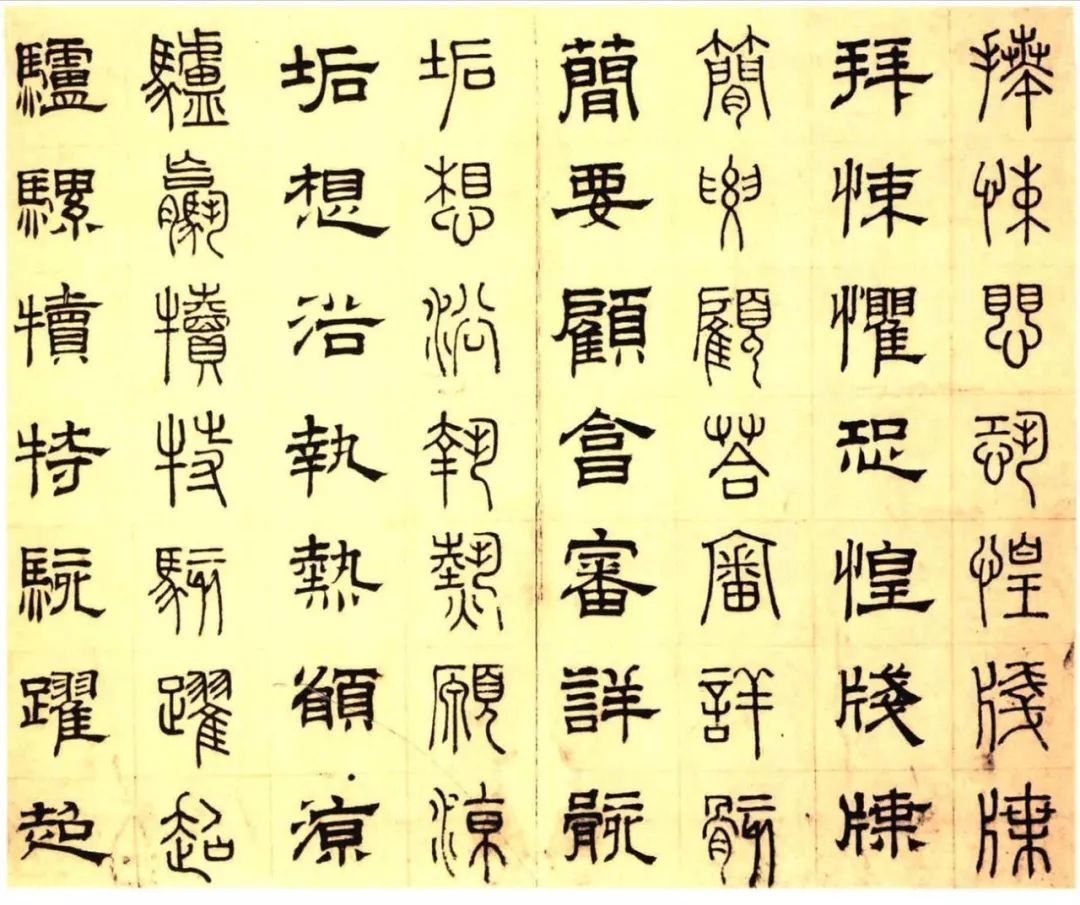 拜悚懼恐惶牋牒
拜悚懼恐惶牋牒
簡要顧荅審詳骸
簡要顧畣審詳骸
垢想浴執熱願涼
垢想浴執熱願涼
驢騾犢特駭躍超
驢騾犢特駭躍超